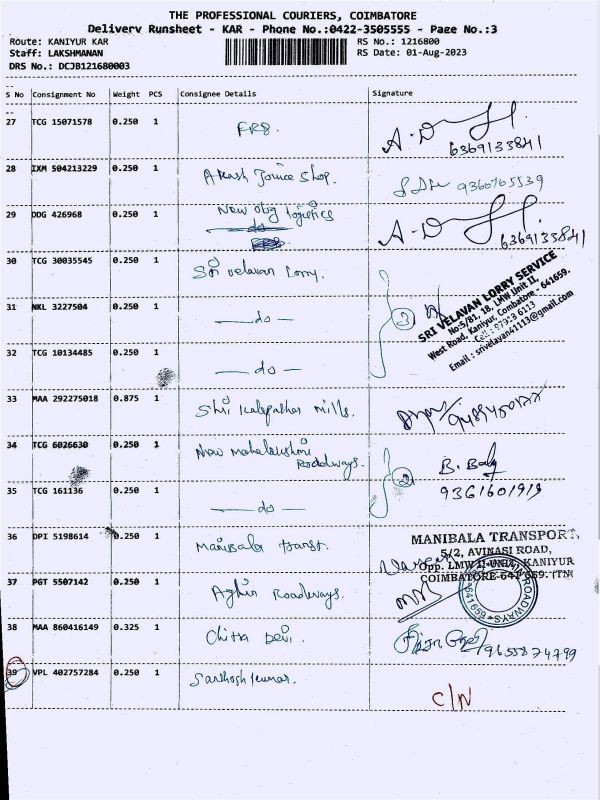 THE PROFESSIONAL COURIERS, COIMBATORE
Delivery Runsheet - KAR - Phone No.:0422-3505555 - Page No.:3
Route: KANIYUR KAR RS No.: 1216800
Staff: LAKSHMANAN RS Date: 01-Aug-2023
DRS No.: DCJB121680003
S No Consignment No Weight PCS Consignee Details Signature
27 TCG 15071578 0.250 1
6369133841
28 IXM 504213229 0.250 1 Akash Shop.
9360765539
29 DDG 426968 0.250 1 New logistics
6369133841
30 TCG 30035545 0.250 1 Sri velavan lorry.
31 NKL 3227504 0.250 1 —do—
3
SRI VELAVAN LORRY SERVICE
No:5/81, 18, LMW Unit II,
West Road, Kaniyur, Coimbatore - 641659.
Email : srivelavan41113@gmail.com
32 TCG 10134485 0.250 1 —do—
33 MAA 292275018 0.875 1 Shri mills.
34 TCG 6026630 0.250 1 New mahalakshmi
Roadways.
2 B. Balaj
9361601919
35 TCG 161136 0.250 1 —do—
36 DPI 5198614 0.250 1 Manibala transt.
MANIBALA TRANSPORT,
5/2, AVINASI ROAD,
Opp. LMW II-UNIT, KANIYUR
COIMBATORE-641 659. (TN)
37 PGT 5507142 0.250 1 Roadways.
ROADWAYS
641659
38 MAA 860416149 0.325 1 Chitra Devi.
9655874799
39 VPL 402757284 0.250 1 Santhosh kumar.
C/N